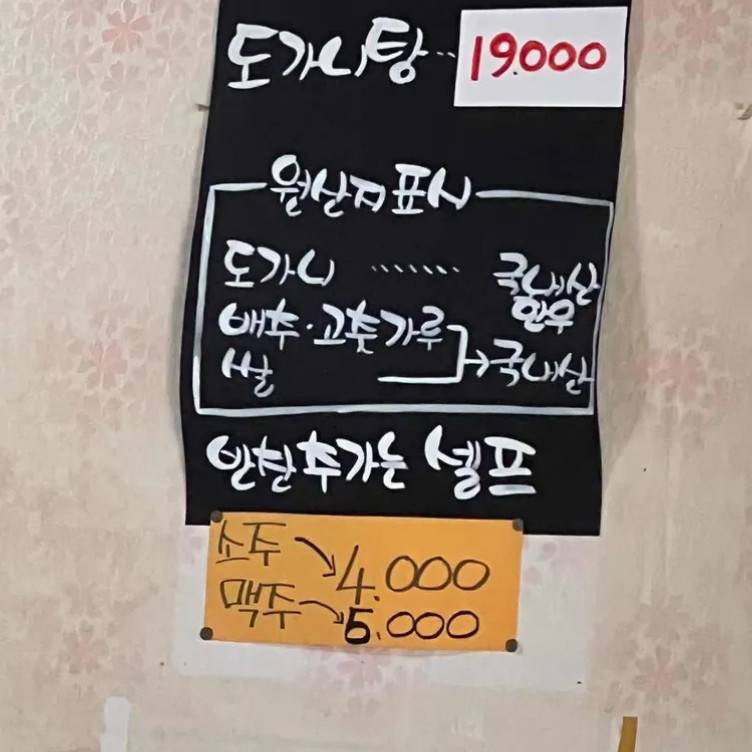 도가니탕·· 19.000
원산지표시
도가니 ········ 국내산
한우
배추·고춧가루
쌀 → 국내산
반찬추가는 셀프
소주 → 4.000
맥주 → 5.000